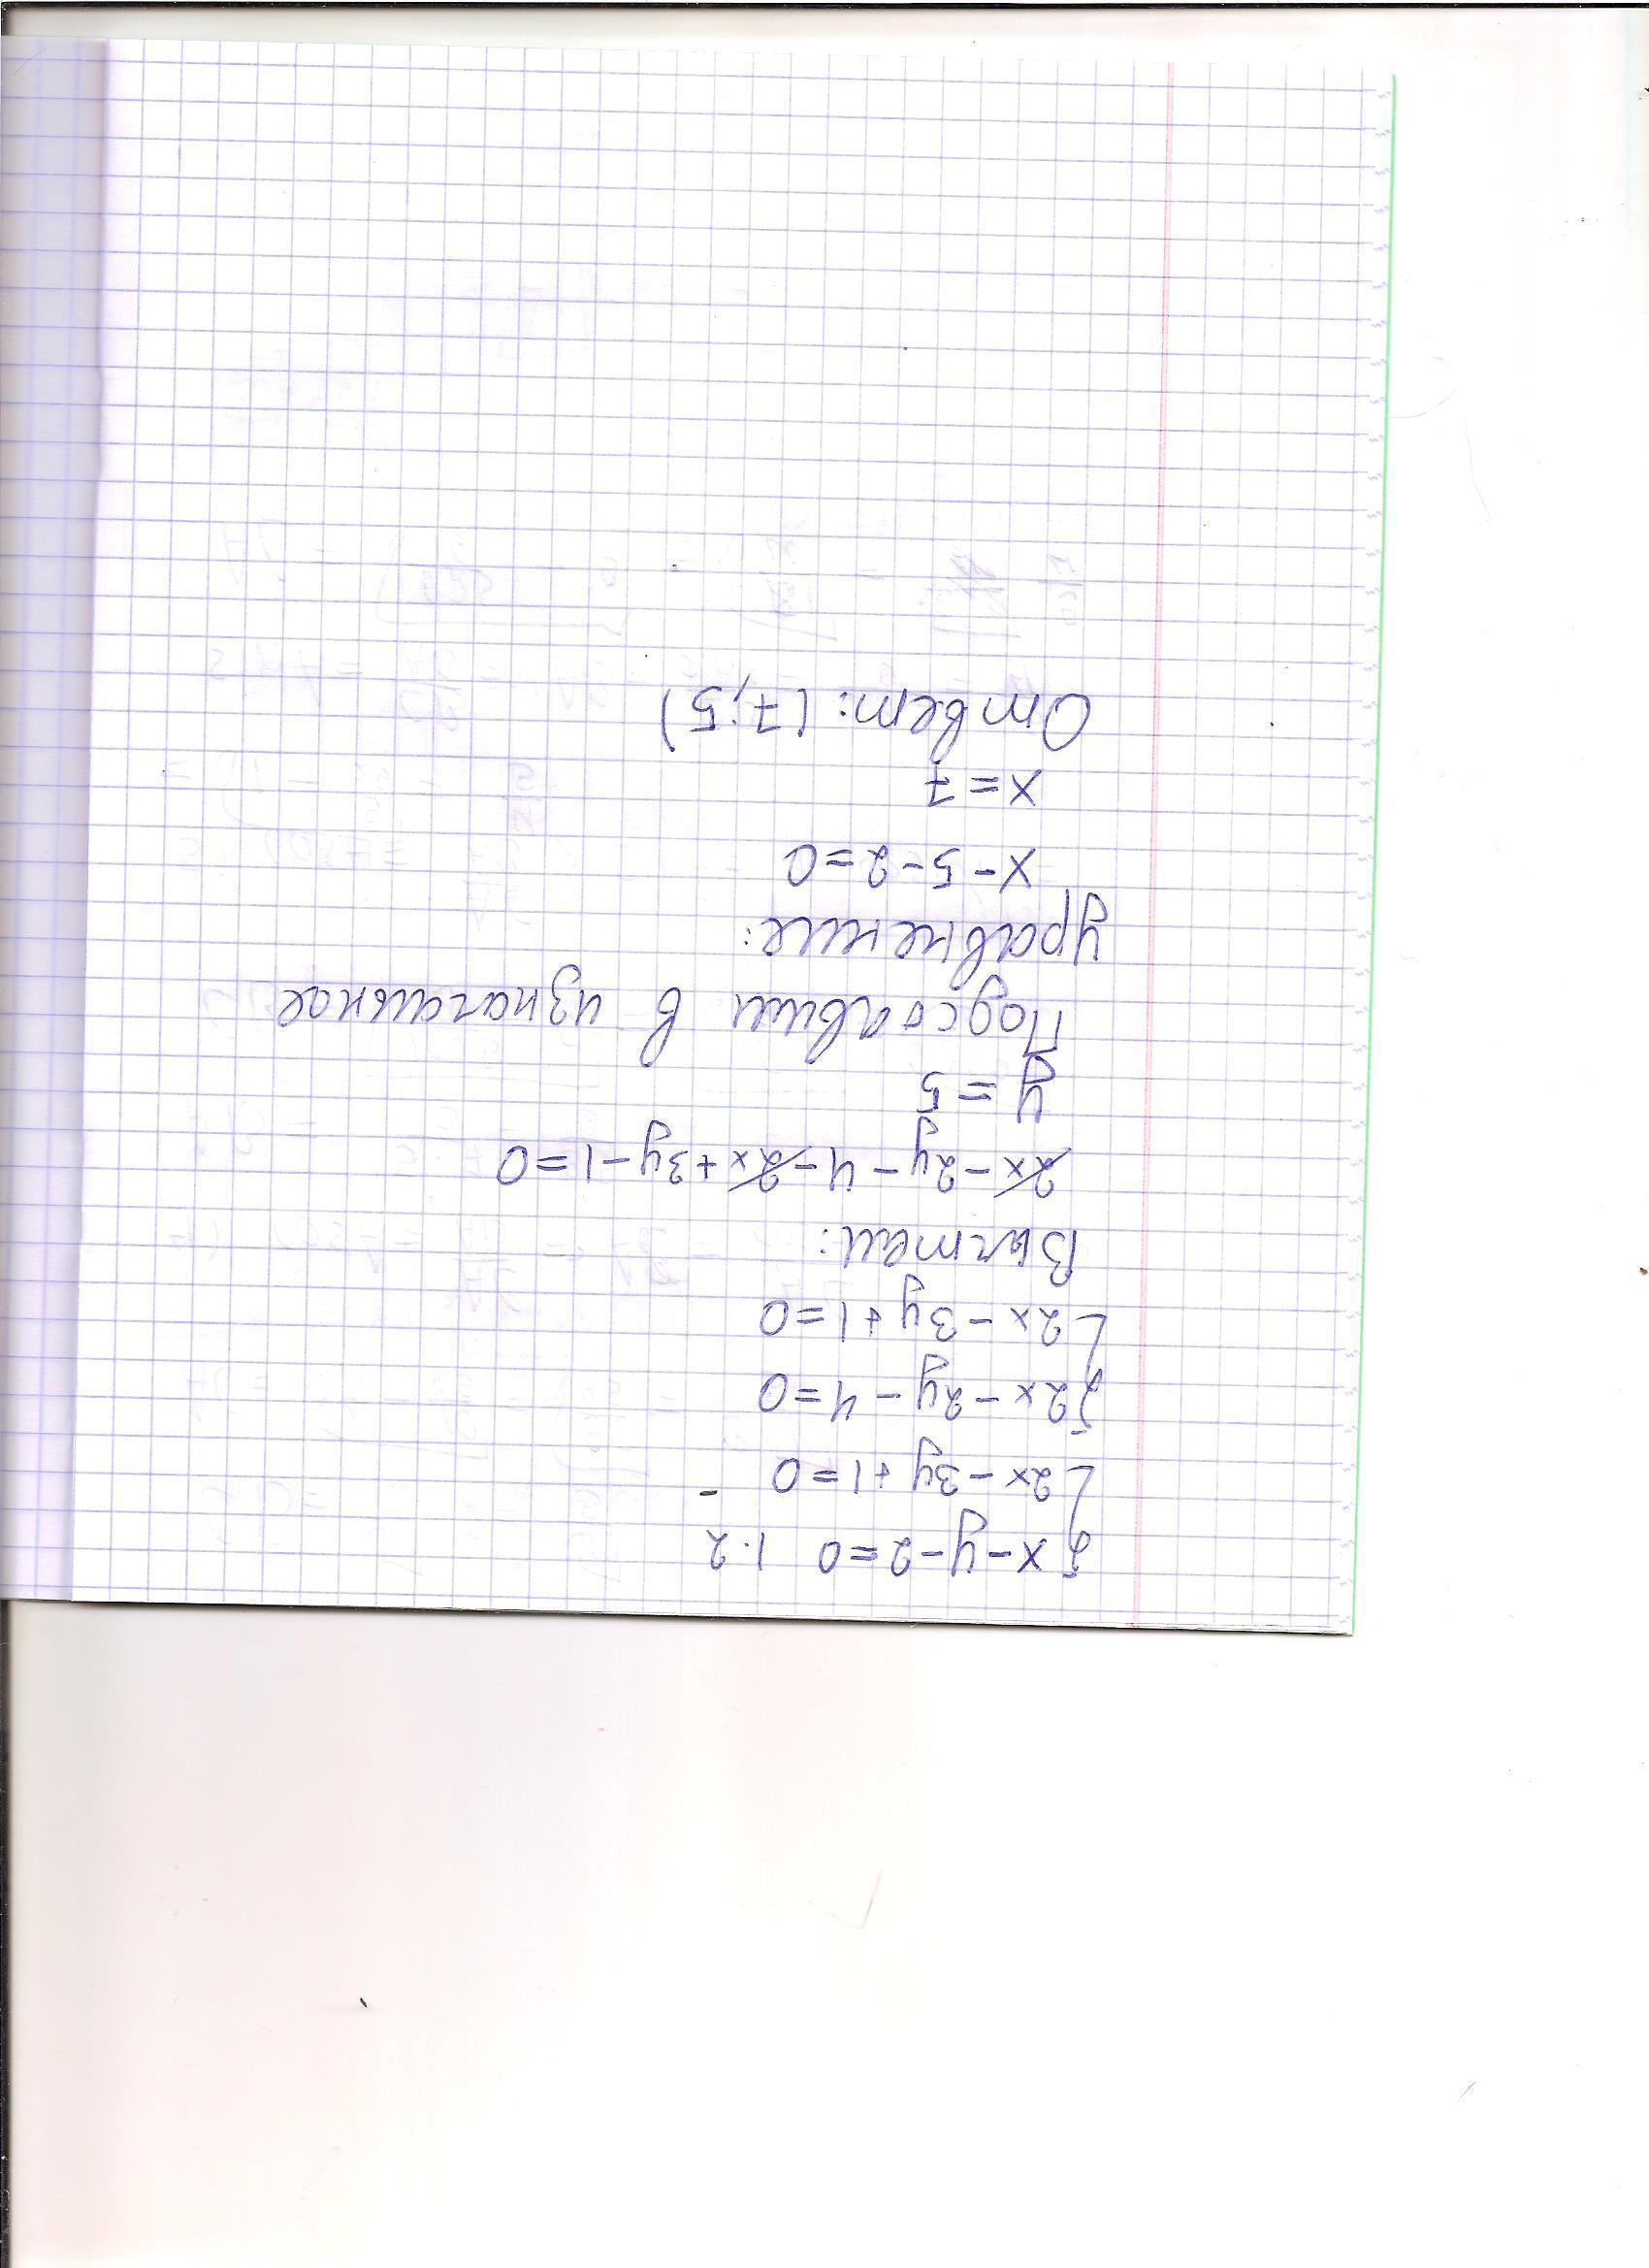 { x-y-2=0 |·2
{ 2x-3y+1=0
{ 2x-2y-4=0
{ 2x-3y+1=0
Вычтем:
2x-2y-4-2x+3y-1=0
y=5
Подставим в изначальное
уравнение:
x-5-2=0
x=7
Ответ: (7;5)